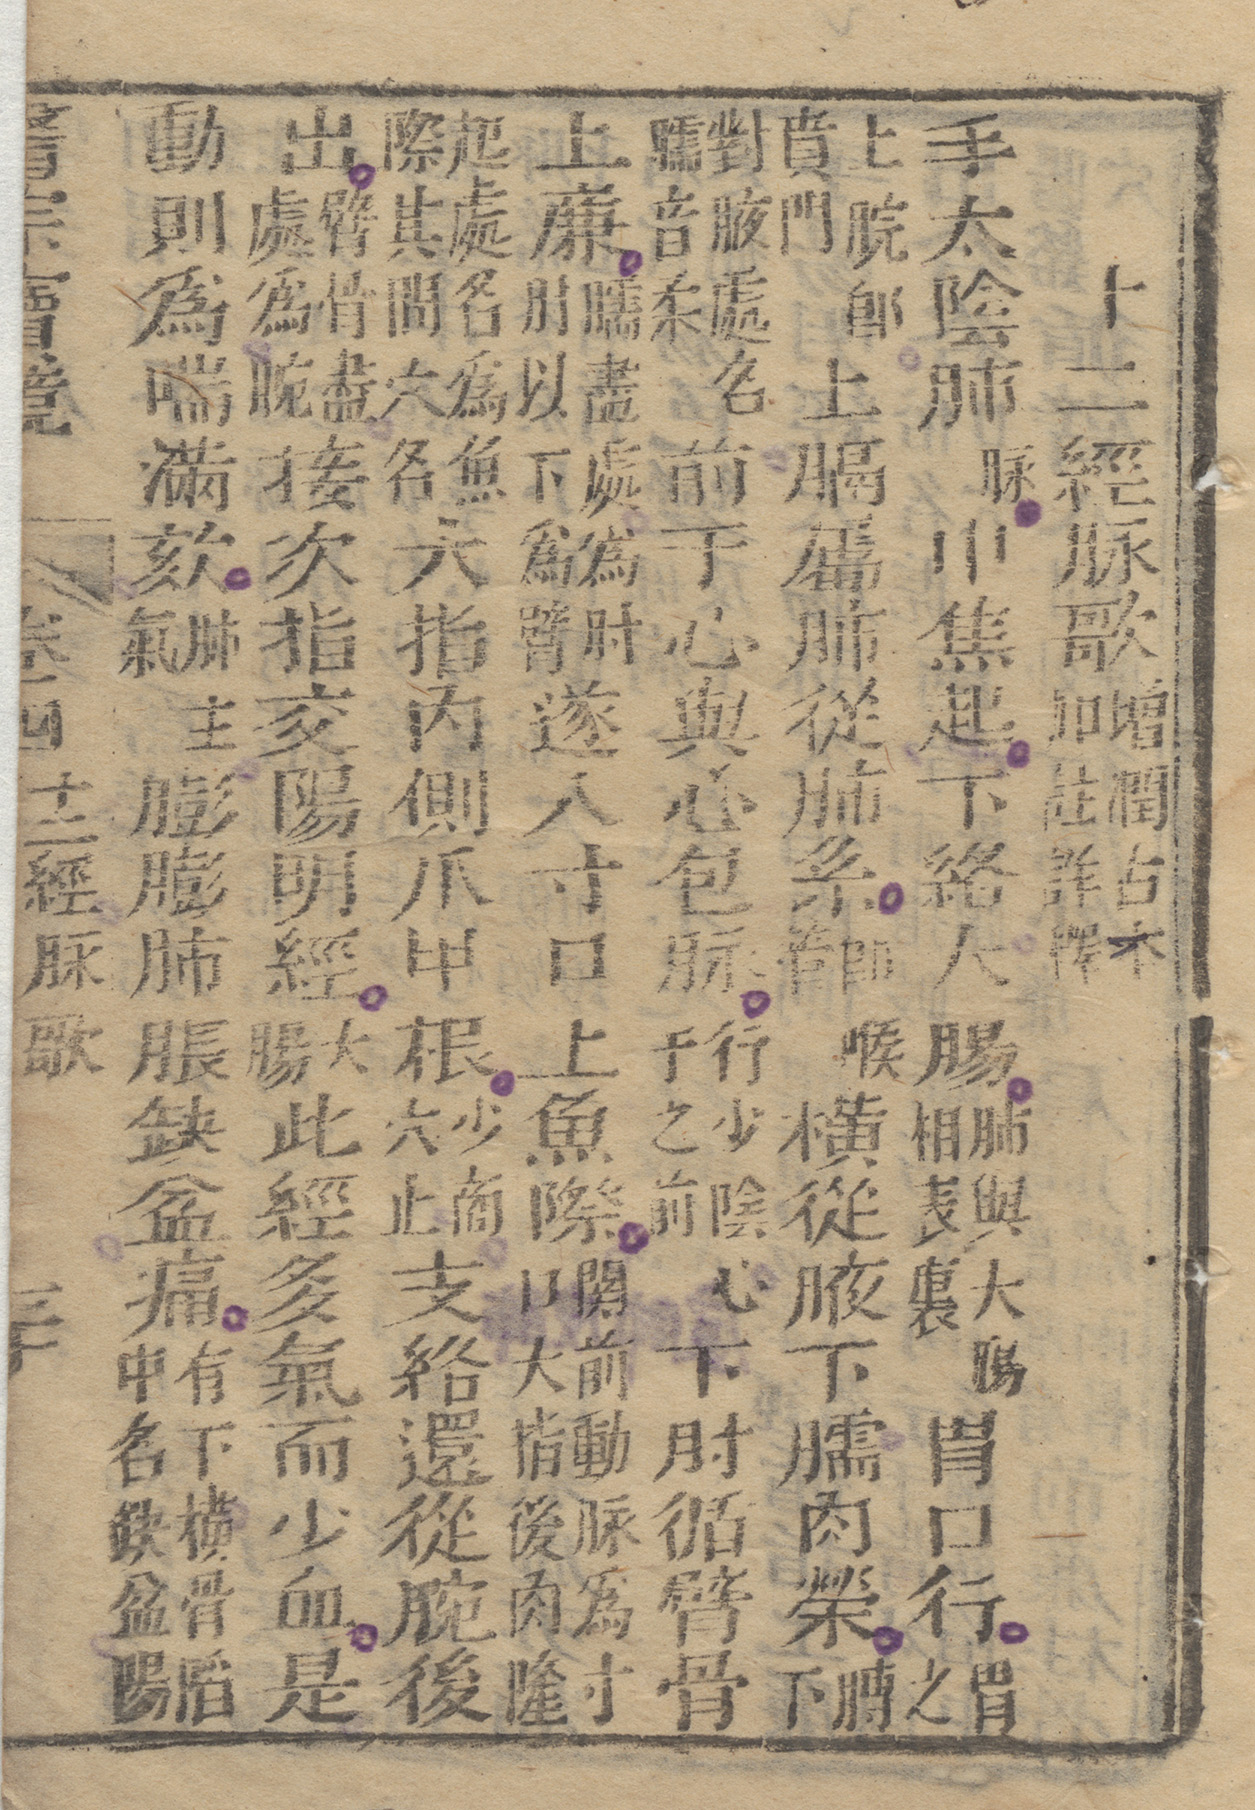 十二經脉歌增潤古本加註詳釋
手太陰肺脉中焦起下絡大腸肺與大腸相表裏胃口行胃之
上脘即賁門上膈屬肺從肺系即喉管橫從腋下臑肉榮膊下
對腋處名臑音柔前于心與心包脉行少陰心于之前下肘循臂骨
上廉臑盡處為肘肘以下為臂遂入寸口上魚際關前動脉為寸口大指後肉隆
起處名為魚際其間穴名大指內側爪甲根少商穴止支絡還從腕後
出臂骨盡處為腕接次指交陽明經大腸此經多氣而少血是
動則為喘滿欬肺主氣膨膨肺脹缺盆痛有下橫骨陷中名缺盆陽
醫宗寶鏡 卷四 十二經脉歌 三十